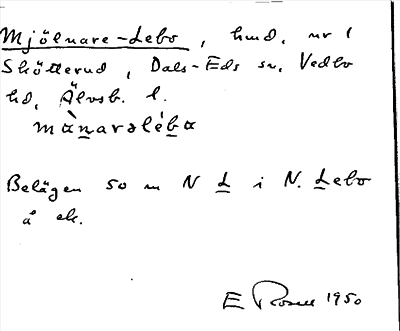 Mjölnare-Lebo, hmd. nr 1
Skötterud, Dals-Eds sn. Vedbo
hd, Älvsb. l.
mànarsléba
Belägen 50 m N L i N. Lebo
å ek.
E Rosell 1950